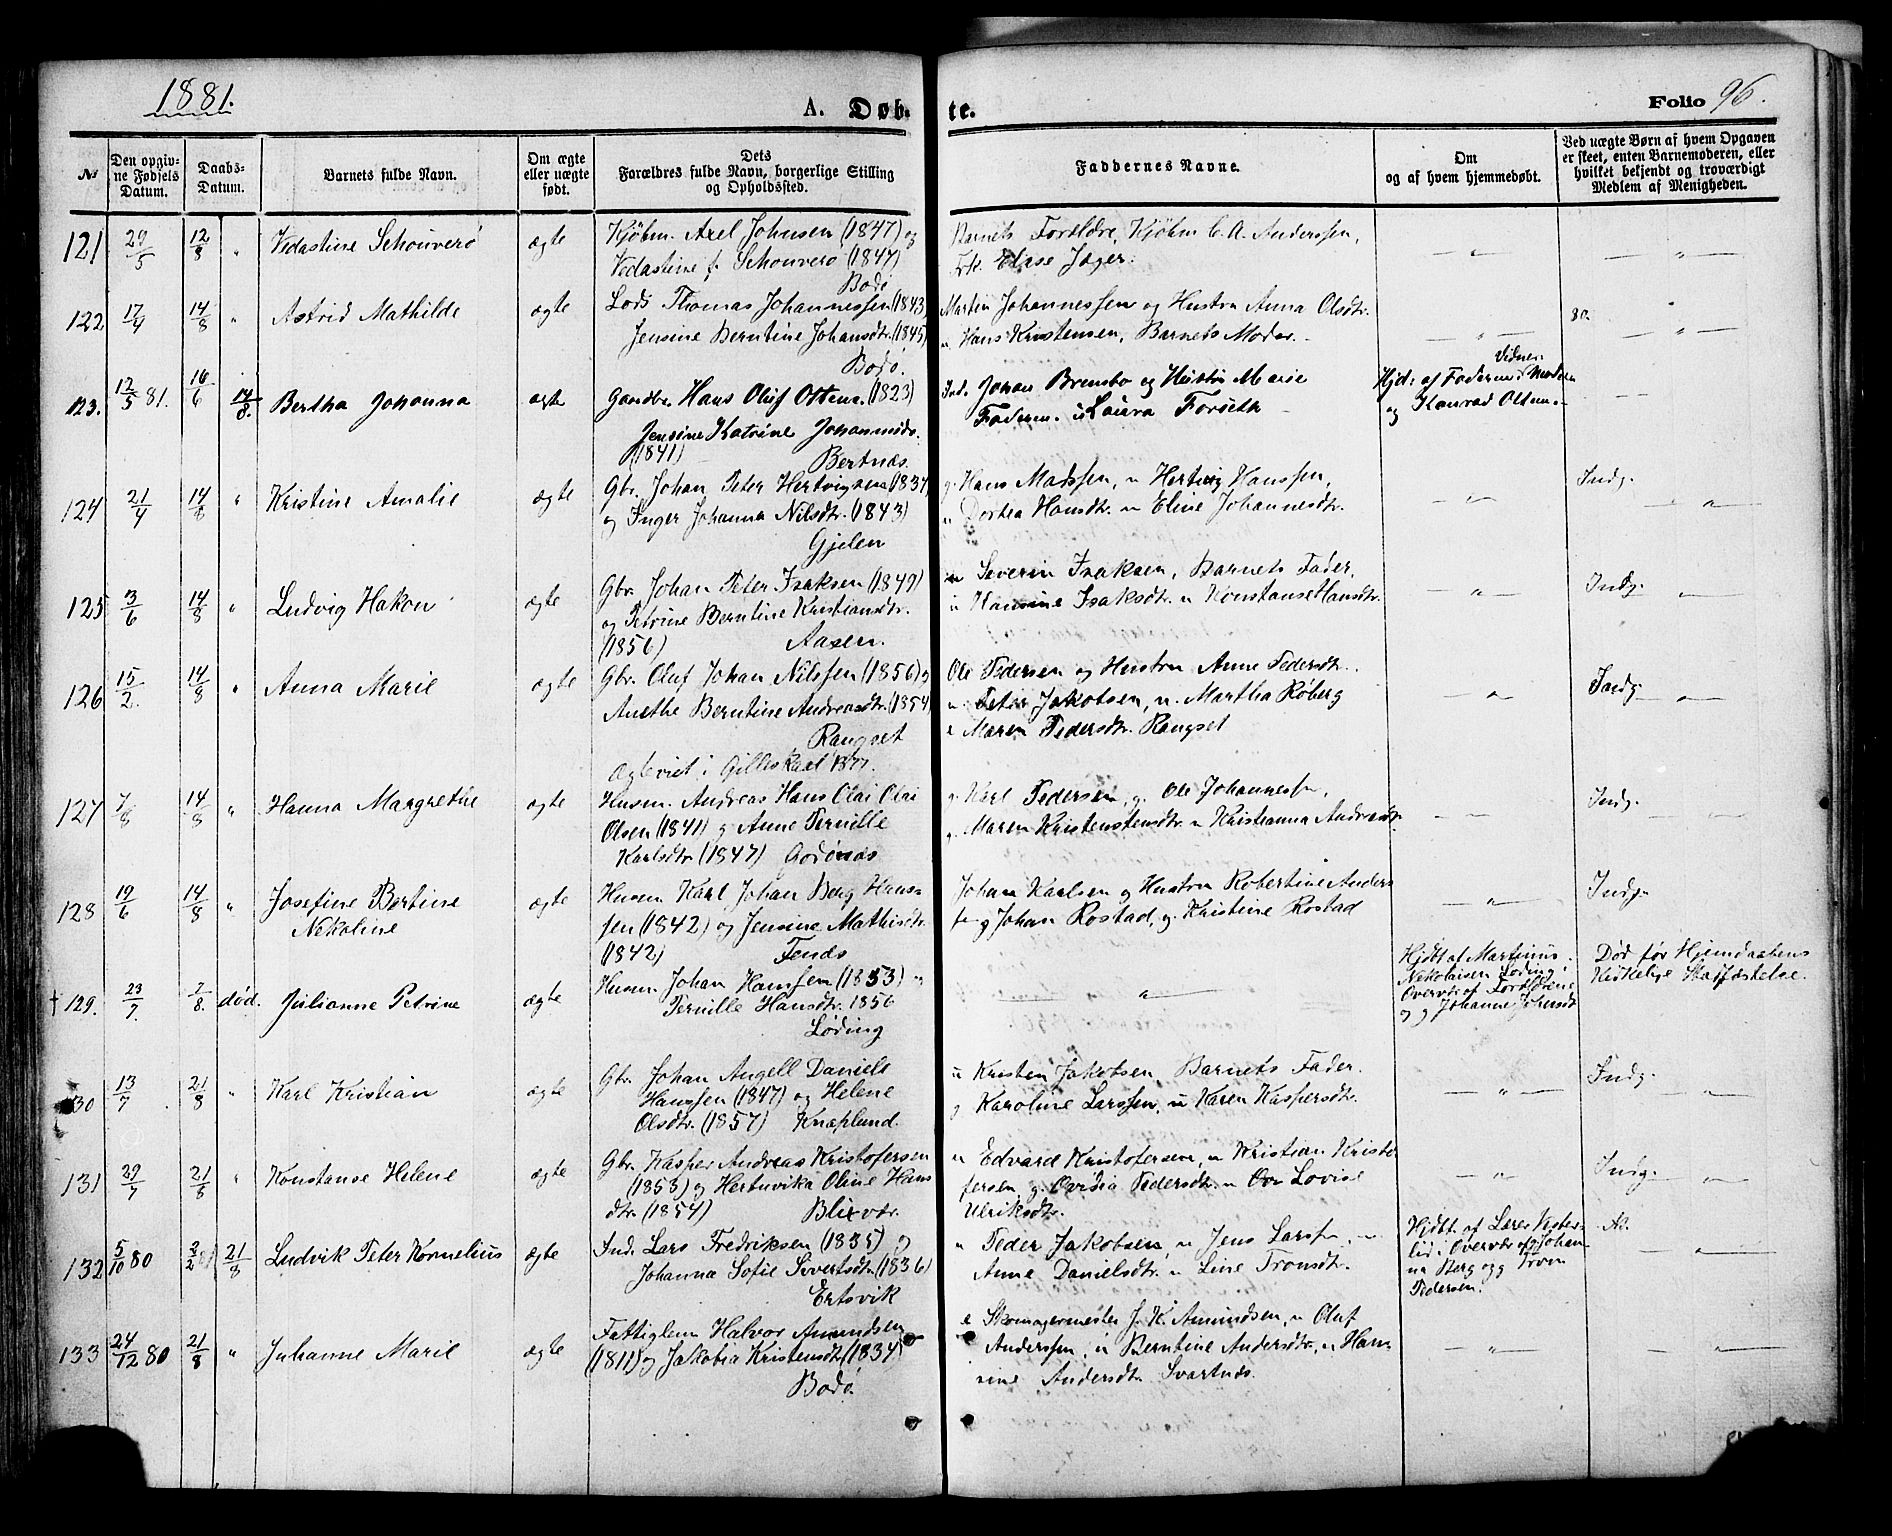 1881.
A. Døb-
te.
Folio 96.
No
Den opgiv-
ne Fødsels
Datum.
Daabs-
Datum.
Barnets fulde Navn.
Om ægte
eller uægte
født.
Dets
Forældres fulde Navn, borgerlige Stilling
og Opholdssted.
Faddernes Navne.
Om
og af hvem hjemmedøbt.
Ved uægte Børn af hvem Opgaven
er skeet, enten Barnemoderen, eller
hvilket bekjendt og troværdigt
Medlem af Menigheden.
121 29/5 12/8 " Vedastine Schouverø ægte
Kjøbm. Axel Johnsen (1847) og
Vedastine f. Schouverø (1847)
Bodø
Barnets Forældre, Kjøbm C. A. Anderssen,
Frk. Elase Jæger.
122 17/4 14/8 " Astrid Mathilde ægte
Lods Thomas Johannessen (1843)
Jensine Berntine Johansdtr. (1845)
Bodø.
Martin Johannessen og Hustru Anna Olsdtr.
" Hans Kristensen, Barnets Moder.
123. 12/5 81. 16/6 14/8. Bertha Johanna ægte
Gaardbr. Hans Oluf Ottens. (1823)
Jensine Katrine Johannesdr.
(1841) Bertnæs.
Ind. Johan Brensbo og Hustru Marie
Faderen. Laura Forseth
Vidner
Hjd: af Faderen: Moderen
og Konrad Olsen.
124 21/4 14/8 " Kristine Amalie ægte
Gbr. Johan Peter Hertvigsen (1837)
og Inger Johanna Nilsdtr. (1843)
Gjelen
g. Hans Madssen, " Hertvig Hanssen,
" Dortea Hansdtr. " Eline Johannesdtr.
Indg.
125 3/6 14/8 " Ludvig Hakon ægte
Gbr. Johan Peter Isaksen (1849)
og Petrine Berntine Kristiansdtr.
(1856) Aasen.
Severin Isaksen, Barnets Fader,
u Hansine Isaksdtr. u Konstanse Hansdtr.
Indg.
126 15/2. 14/8 " Anna Marie ægte
Gbr. Oluf Johan Nilssen (1856) og
Anethe Berntine Andreasdtr. (1854)
Rangset
Ægteviet i Gilleskaal 1877.
Ole Pedersen og Hustru Anne Pedersdtr.
u. Peter Jakobsen, u. Martha Røberg
e Maren Pedersdtr. Rangset
Indg.
127 7/8 14/8 " Hanna Margrethe ægte
Husm. Andreas Hans Olai Olai
Olsen (1841) g Anne Pernille
Karlsdtr (1847) Godønæs
g. Karl Pedersen, g. Ole Johannessen,
g. Maren Kristenstensdtr. u Kristianna Andreasdtr
Indg.
128 19/6 14/8 " Josefine Bertine
Nekoline ægte
Husm Karl Johan Berg Hans-
sen (1842) og Jensine Mathisdtr.
(1842) Fends
Johan Karlsen og Hustru Robertine Anders
g Johan Rostad, g. Kristine Rostad
Indg.
† 129. 23/7. 7/8. død. Julianne Petrine ægte
Husm. Johan Hanssen (1853) "
Pernille Hansdtr. 1856
Løding
Hjdt af Martinus
Nekolaisen Løding i
Overvær af Forældrene
og Johanne Johansdtr
Død før Hjemdaabens
Kirkelige Stadfæstelse.
130 13/7 21/8 " Karl Kristian ægte
Gbr. Johan Angell Daniels
Hanssen (1847) og Helene
Olsdtr. (1857) Knaplund.
u Kristen Jakobsen, Barnets Fader.
g Karoline Larssen, u Karen Kaspersdtr.
Indg.
131 29/7 21/8 " Konstanse Helene ægte
Gbr. Kasper Andreas Kristofersen
(1853) og Hertnvika Oline Hans
dtr. (1854) Blixvær.
u Edvard Kristofersen, u Kristian Kristo
fersen, g. Ovidia Pedersdtr. u Ova Lovise
Ulriksdtr.
Indg.
132 5/10 80 2/2 81 21/8 Ludvik Peter Kornelius ægte
Ind. Lars Fredriksen (1835) og
Johanna Sofie Sivertsdtr. (1836)
Ertsvik
" Peder Jakobsen, u Jens Larssen,
Anne Danielsdtr. u Line Tronsdtr.
Hjdbt. af Lærer Vester-
lid i Overvær af Johan-
na Berg og Tron
Pedersen.
133 24/12 80 21/8 " Juhanne Marie ægte
Fattiglem Halvor Amundsen
(1811) og Jakobia Kristensdtr. (1834)
Bodø.
e Skomagermester J. K. Amundsen, u Oluf
Anderssen, u Berntine Andersdtr, u Han-
sine Andersdtr. Svartnæs.